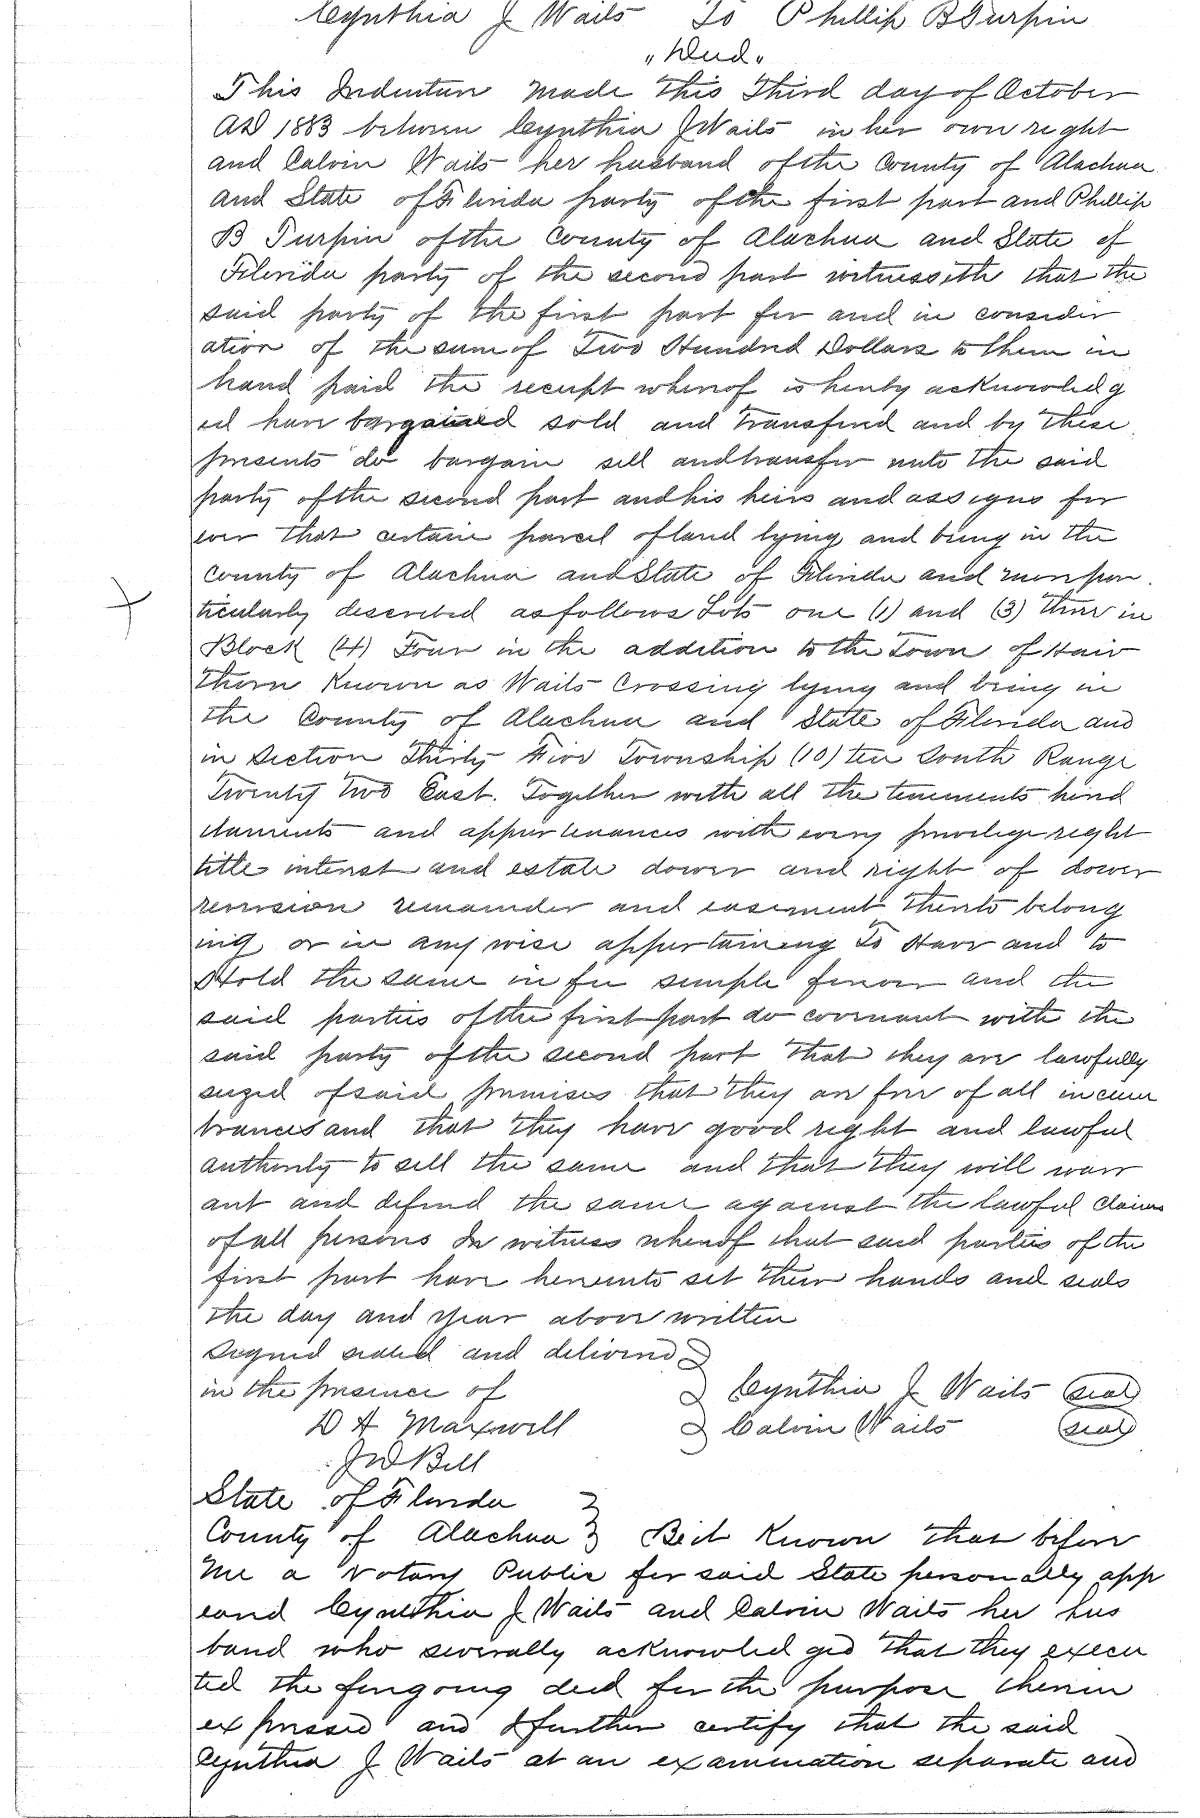 Cynthia J Waits To Phillip B Turpin
"Deed"
This Indenture made this Third day of October
AD 1883 between Cynthia J Waits in her own right
and Calvin Waits her husband of the County of Alachua
and State of Florida party of the first part and Phillip
B Turpin of the County of Alachua and State of
Florida party of the second part witnesseth that the
said party of the first part for and in consider
ation of the sum of Two Hundred Dollars to them in
hand paid the receipt whereof is hereby acknowledg
ed have bargained sold and transfered and by these
presents do bargain sell and transfer unto the said
party of the second part and his heirs and assigns for
ever that certain parcel of land lying and being in the
County of Alachua and State of Florida and more par
ticularly described as follows Lots one (1) and (3) three in
Block (4) Four in the addition to the Town of Haw
thorn Known as Waits Crossing lying and being in
the County of Alachua and State of Florida and
in Section Thirty Five Township (10) ten South Range
Twenty Two East. Together with all the tenements hered
itaments and appurtenances with every privilege right
title interest and estate dower and right of dower
reversion remainder and easement thereto belong
ing or in any wise appertaining To Have and to
Hold the same in fee simple forever and the
said parties of the first part do covenant with the
said party of the second part that they are lawfully
seized of said premises that they are free of all incum
brances and that they have good right and lawful
authority to sell the same and that they will warr
ant and defend the same against the lawful claims
of all persons In witness whereof that said parties of the
first part have hereunto set their hands and seals
the day and year above written
Signed sealed and delivered
in the presence of Cynthia J Waits (seal)
D A Maxwell Calvin Waits (seal)
J W Bell
State of Florida
County of Alachua Be it Known that before
me a Notary Public for said State personally app
eared Cynthia J Waits and Calvin Waits her hus
band who severally acknowledged that they execu
ted the foregoing deed for the purpose therein
expressed and I further certify that the said
Cynthia J Waits at an examination separate and